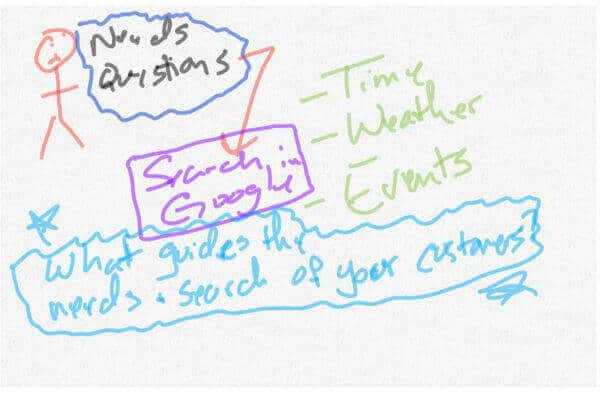 Needs
Questions
- Time
- Weather
- Events
Search in
Google
What guides the
needs & search of your customers?